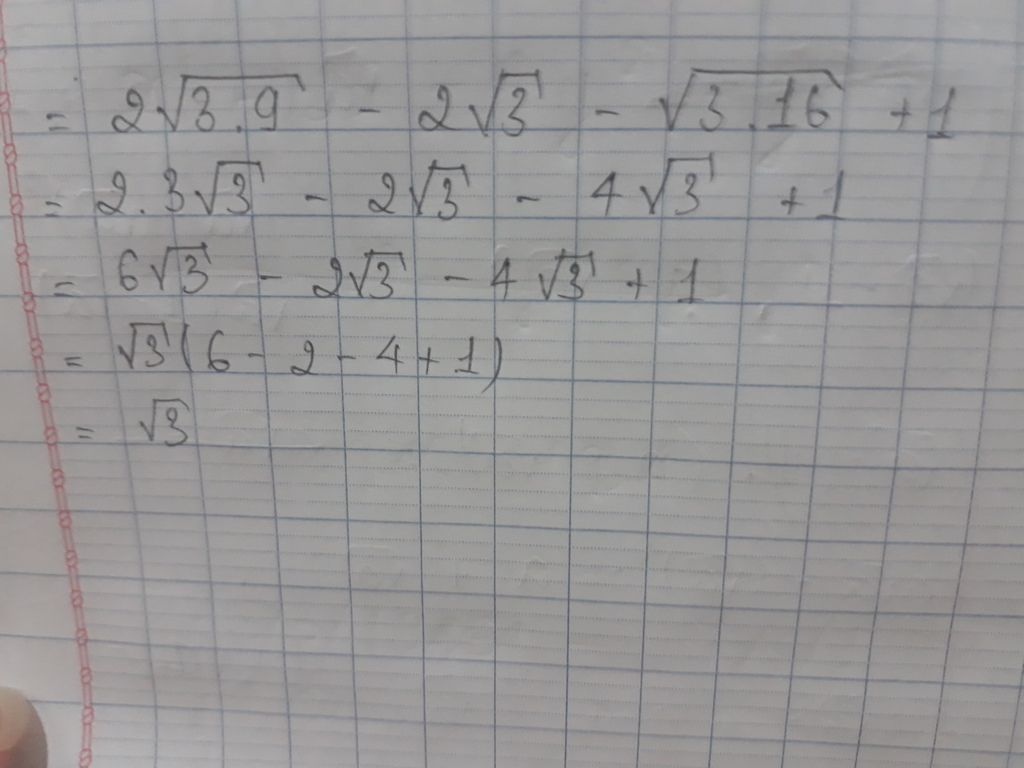 = 2√3.9 - 2√3 - √3.16 + 1
= 2.3√3 - 2√3 - 4√3 + 1
= 6√3 - 2√3 - 4√3 + 1
= √3(6 - 2 - 4 + 1)
= √3